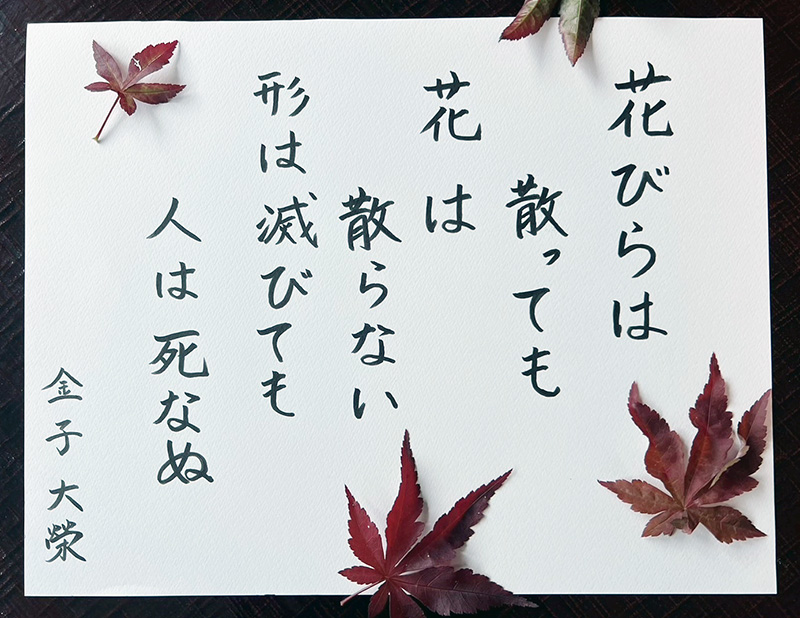 花びらは
散っても
花は
散らない
形は滅びても
人は死なぬ
金子大榮